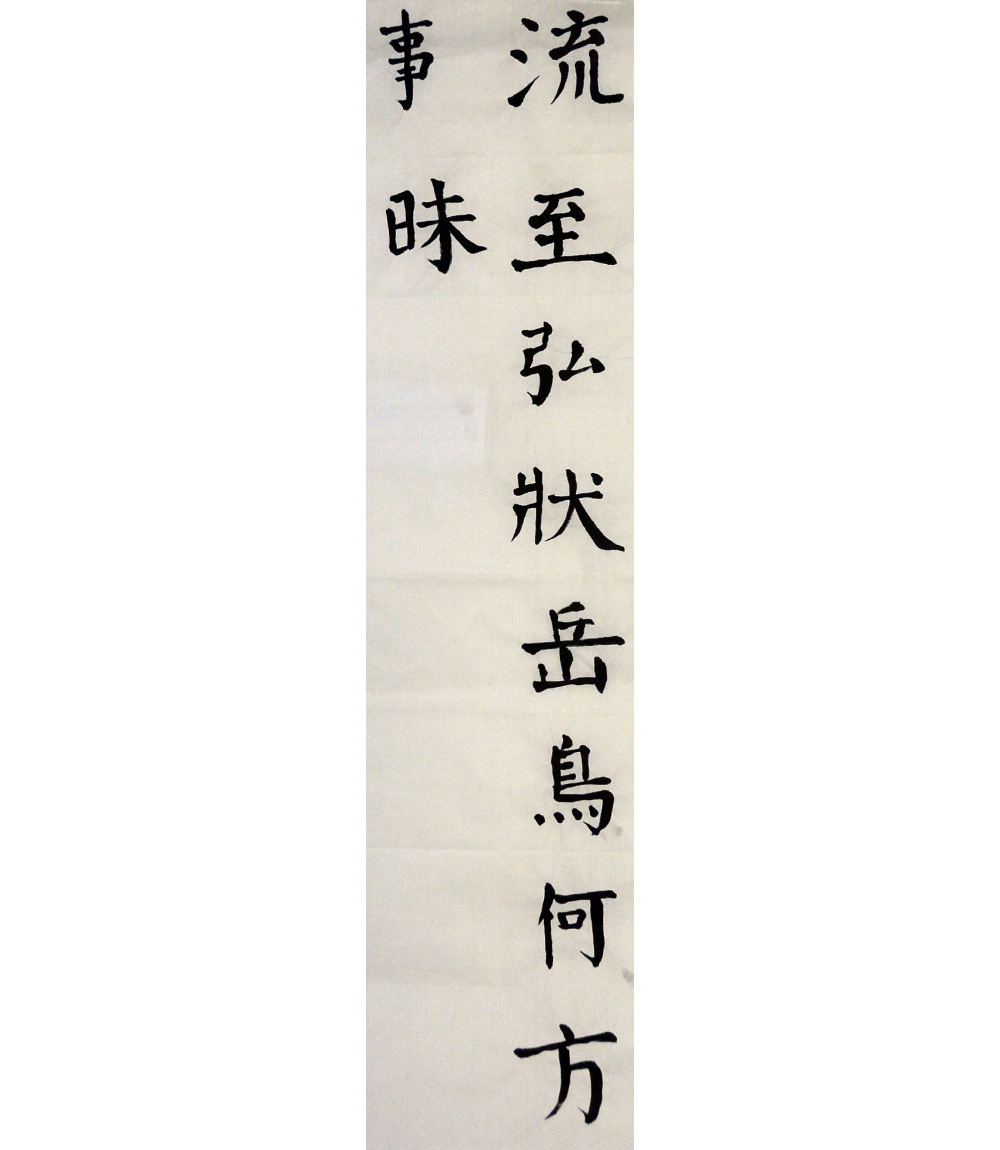 流至弘狀岳鳥何方
事昧